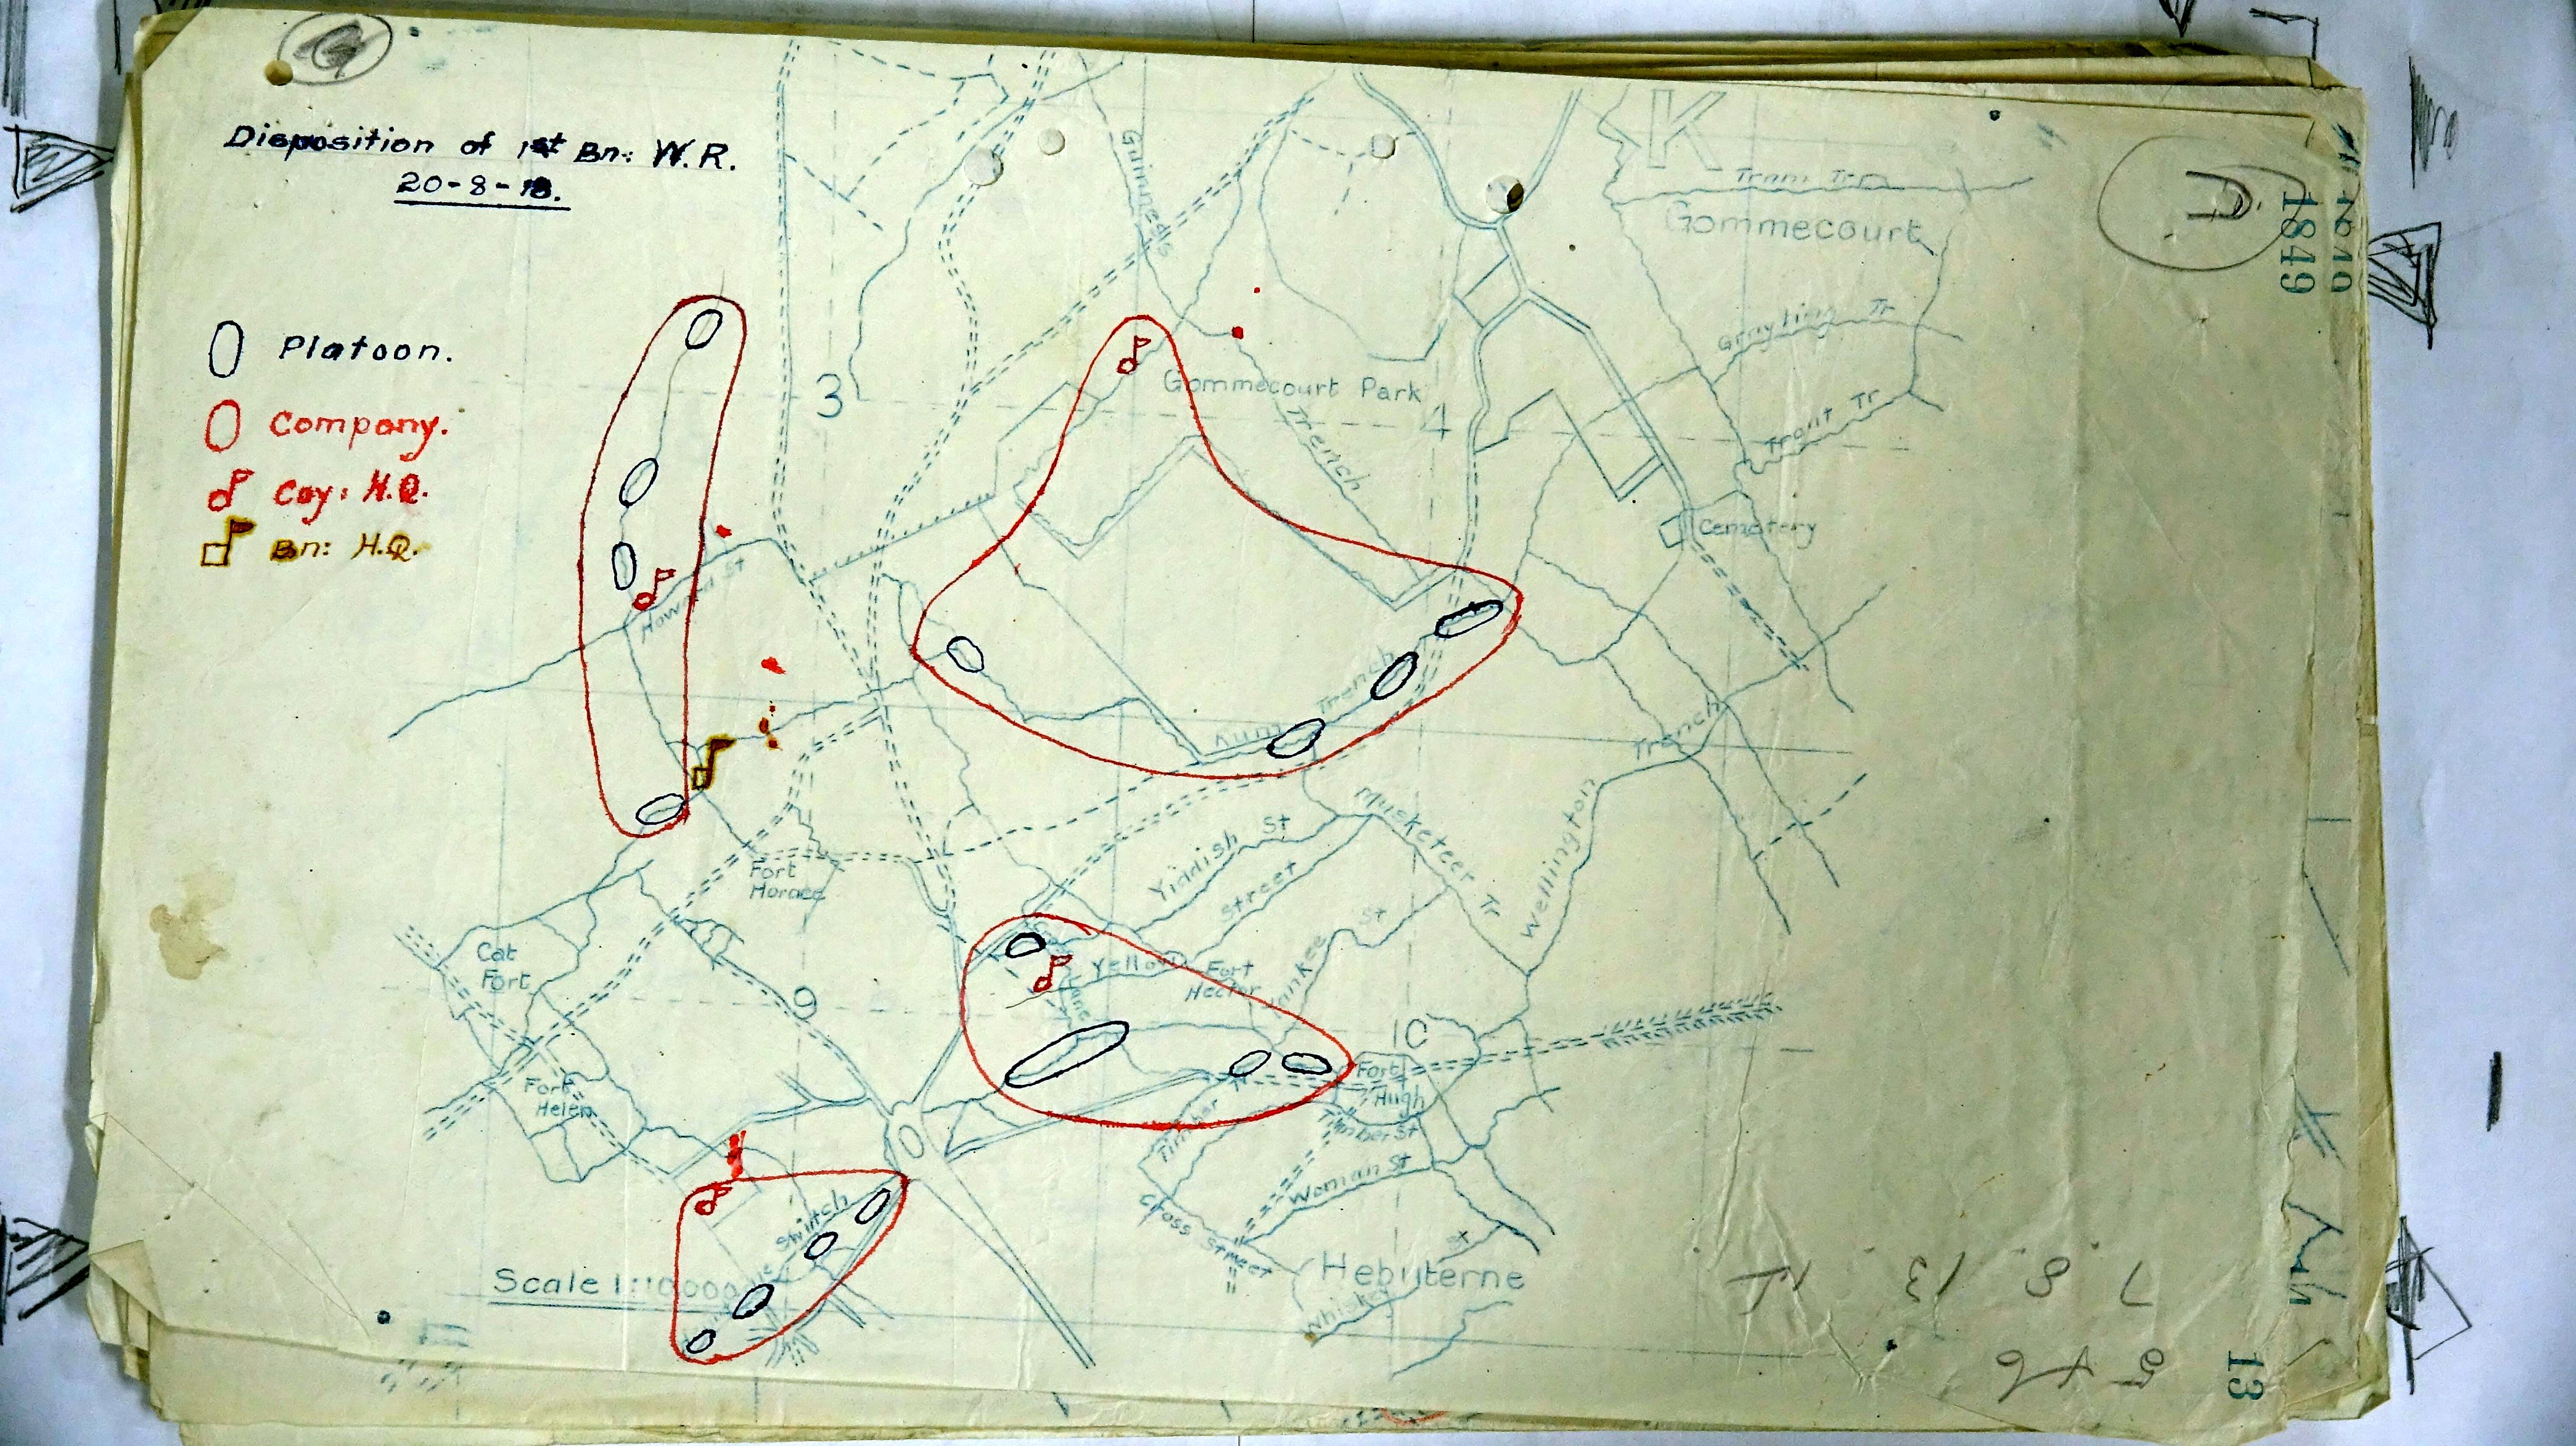 Disposition of 1st Bn: W.R.
20-8-18.
Platoon.
Company.
Coy: H.Q.
Bn: H.Q.
K
Tram Tr
Gommecourt
Guinness
Grayling Tr
Gommecourt Park
Trench
3
4
Front Tr
Cemetery
Howard St
Trench
Trench
Musketeer Tr
Wellington
Yiddish St
Street
Fort
Horace
St
Cat
Fort
Yellow
Fort
Hector
Yankee
Lane
9
10
Fort
Hugh
Fort
Helen
Timber
Timber St
Woman St
Cross Street
Switch
St
Hebuterne
Whiskey
Scale 1:10000
1849
7 8 13
5 + 6
13